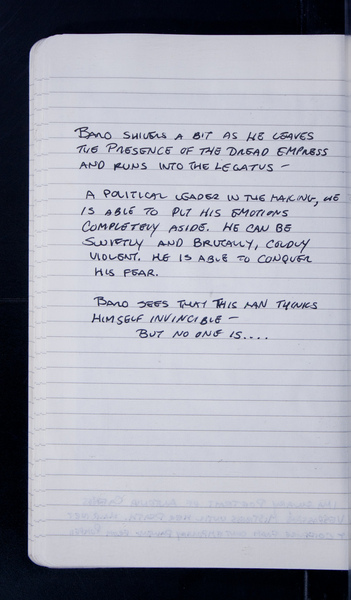 BARO SHIVERS A BIT AS HE LEAVES
THE PRESENCE OF THE DREAD EMPRESS
AND RUNS INTO THE LEGATUS –
A POLITICAL LEADER IN THE MAKING, HE
IS ABLE TO PUT HIS EMOTIONS
COMPLETELY ASIDE. HE CAN BE
SWIFTLY AND BRUTALLY, COLDLY
VIOLENT. HE IS ABLE TO CONQUER
HIS FEAR.
BARO SEES THAT THIS MAN THINKS
HIMSELF INVINCIBLE –
BUT NO ONE IS....